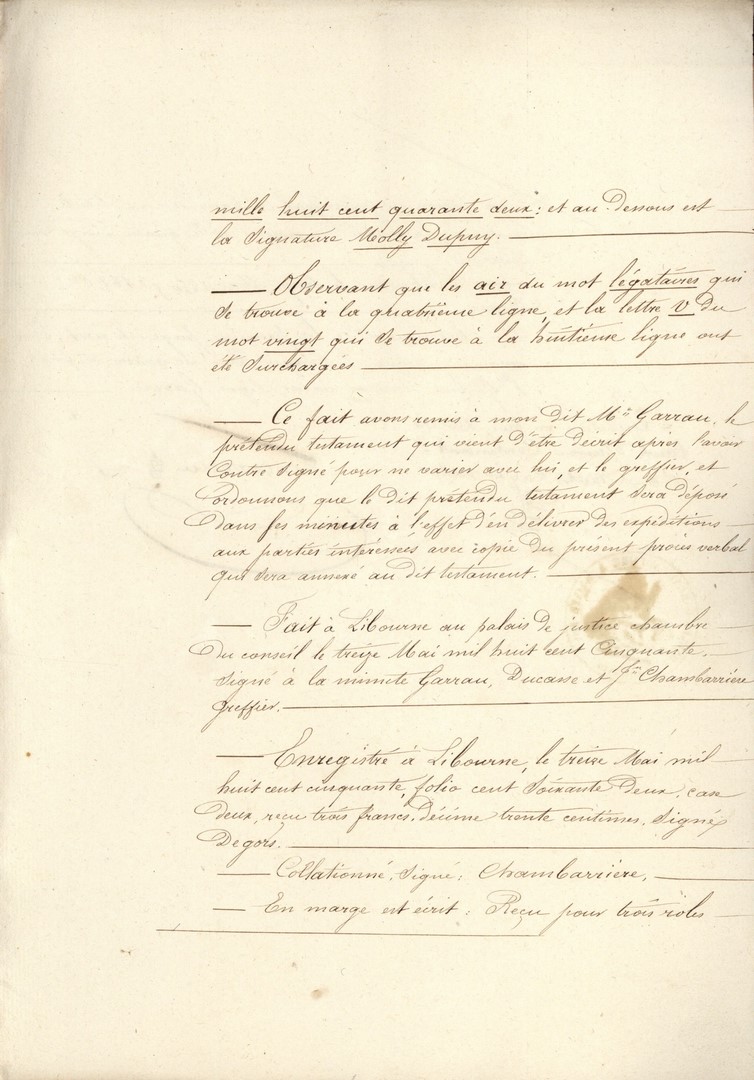 mille huit cent quarante deux: et au-dessous est
la signature Molly Dupuy.
Observant que les air du mot légataires qui
se trouve à la quatrième ligne, et la lettre v du
mot vingt qui se trouve à la huitième ligne ont
été surchargées
Ce fait avons remis à mon dit Me Garrau, le
prétendu testament qui vient d'être décrit après l'avoir
contre signé pour ne varier avec lui, et le greffier, et
ordonnons que le dit prétendu testament sera déposé
dans ses minutes à l'effet d'en délivrer des expéditions
aux parties intéressées avec copie du présent procès verbal
qui sera annexé au dit testament.
Fait à Libourne au palais de justice chambre
du conseil le treize Mai mil huit cent cinquante.
Signé à la minute Garrau, Ducasse et Jn Chambarrière
greffier.
Enregistré à Libourne, le treize Mai mil
huit cent cinquante, folio cent soixante deux, case
deux, reçu trois francs, décime trente centimes, signé
Degors.
Collationné. Signé: Chambarrière.
En marge est écrit: Reçu pour trois rôles